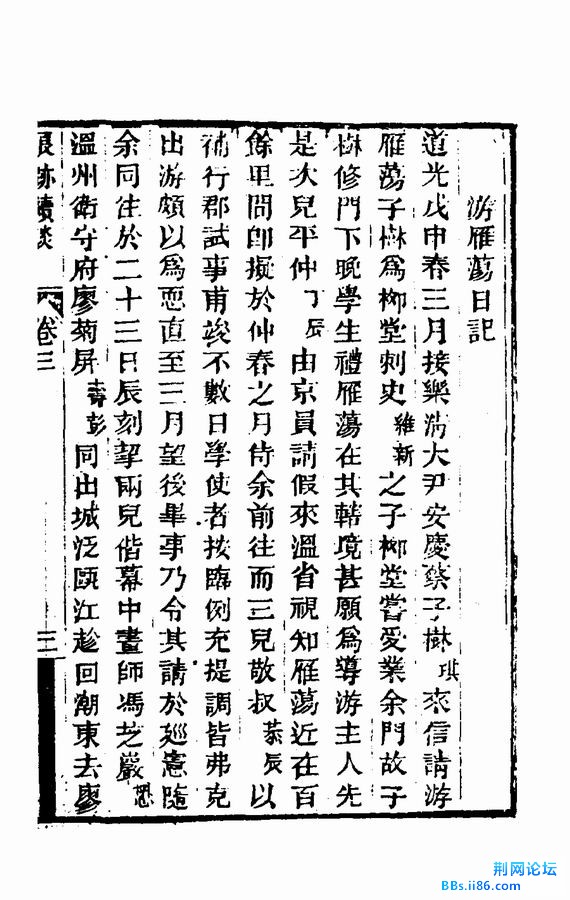 游雁蕩日記
道光戊申春三月接樂淸大尹安慶蔡子樹琪來信請游
雁蕩子樹爲柳堂刺史維新之子柳堂嘗受業余門故子
樹修門下晚學生禮雁蕩在其轄境甚願爲導游主人先
是次兒平仲丁辰由京員請假來溫省視知雁蕩近在百
餘里間即擬於仲春之月侍余前往而三兒敬叔恭辰以
補行郡試事甫竣不數日學使者按臨例充提調皆弗克
出游頗以爲恧直至三月望後畢事乃令其請於廵憲隨
余同往於二十三日辰刻挈兩兒偕幕中畫師馮芝巖
溫州衛守府廖菊屏壽彭同出城泛甌江趁回潮東去廖
浪跡續談
卷三
三
荆网论坛
BBs.ii86.com